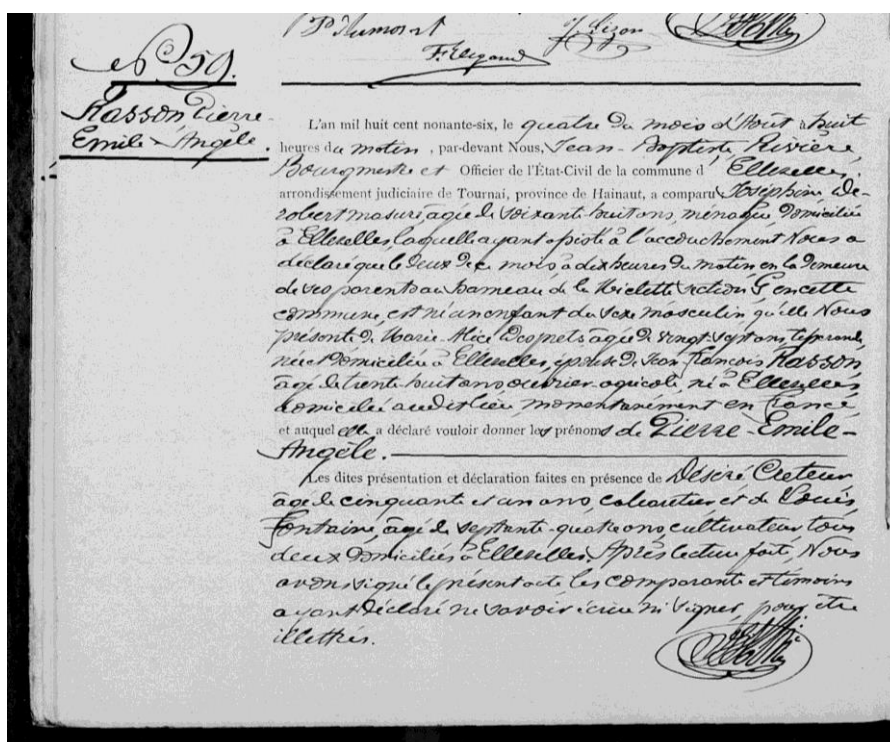 N° 59.
Rasson Pierre-
Emile-Angèle.
L'an mil huit cent nonante-six, le quatre du mois d'Août à huit
heures du matin, par-devant Nous, Jean-Baptiste Rivière,
Bourgmestre et Officier de l'État-Civil de la commune d'Ellezelles,
arrondissement judiciaire de Tournai, province de Hainaut, a comparu Joséphine De-
robertmasure, agée de soixante huit ans, ménagère, domiciliée
à Ellezelles, laquelle ayant assisté à l'accouchement Nous a
déclaré que le deux de ce mois à dix heures du matin en la demeure
de ses parents au hameau de la section G en cette
commune, est né un enfant du sexe masculin qu'elle Nous
présente de Marie-Alice agée de vingt-sept ans, tisserande,
née et domiciliée à Ellezelles, épouse de Jean François Rasson,
agé de trente-huit ans ouvrier-agricole, né à Ellezelles
domicilié audit lieu momentanément en France
et auquel elle a déclaré vouloir donner les prénoms de Pierre-Emile-
Angèle.
Les dites présentation et déclaration faites en présence de Désiré Creteur
agé de cinquante et un ans, cabaretier et de Louis
Fontaine, agé de septante-quatre ans, cultivateur tous
deux domiciliés à Ellezelles. Après lecture faite, Nous
avons signé le présent acte les comparante et témoins
ayant déclaré ne savoir écrire ni signer, pour être
illettrés.